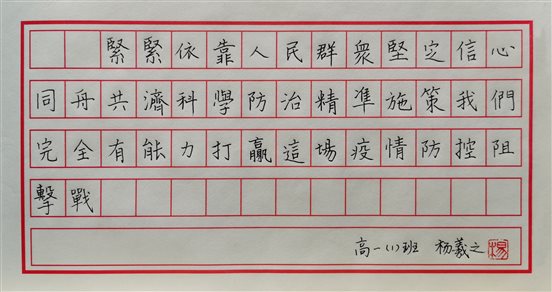 緊緊依靠人民群眾堅定信心
同舟共濟科學防治精準施策我們
完全有能力打贏這場疫情防控阻
擊戰
高一(1)班 杨義之 楊